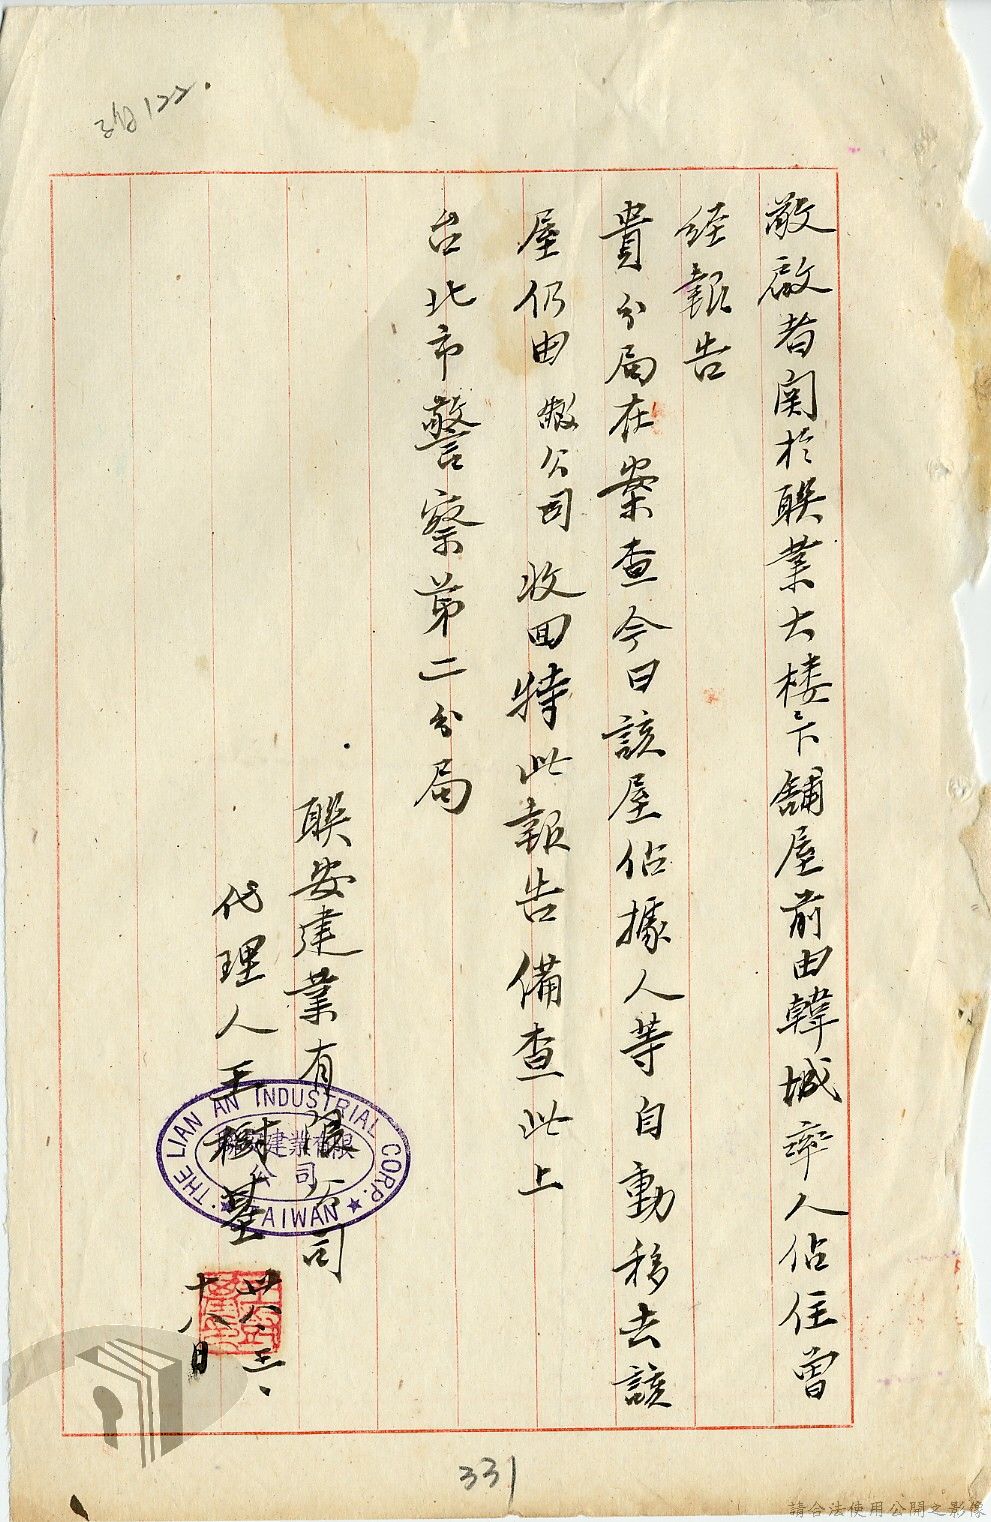 敬啟者関於聯業大楼下舖屋前由韓城率人佔住曾
经報告
貴分局在案查今日該屋佔據人等自動移去該
屋仍由敝公司收回特此報告備查此上
台北市警察第二分局
聯安建業有限公司
代理人王樹基
卅八、三、
十八日
THE LIAN AN INDUSTRIAL CORP.
聯安建業有限
公司
TAIWAN
331
請合法使用公開之影像